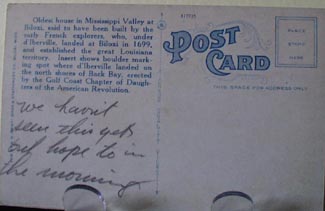 Oldest house in Mississippi Valley at
Biloxi, said to have been built by the
early French explorers, who, under
d'Iberville, landed at Biloxi in 1699,
and established the great Louisiana
territory. Insert shows boulder mark-
ing spot where d'Iberville landed on
the north shores of Back Bay, erected
by the Golf Coast Chapter of Daugh-
ters of the American Revolution.
we havn't
seen this yet
but hope to in
the morning
POST CARD
PLACE
STAMP
HERE
THIS SPACE FOR ADDRESS ONLY